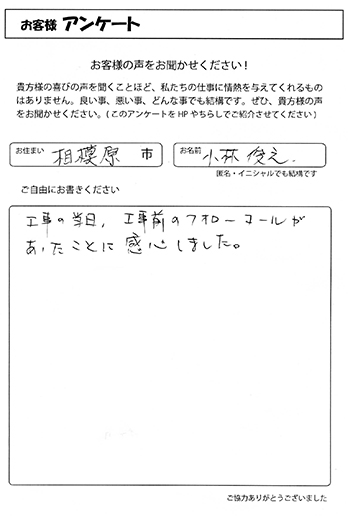 お客様 アンケート
お客様の声をお聞かせください!
貴方様の喜びの声を聞くことほど、私たちの仕事に情熱を与えてくれるもの
はありません。良い事、悪い事、どんな事でも結構です。ぜひ、貴方様の声
をお聞かせください。(このアンケートを HP やちらしでご紹介させてください)
お住まい 相模原 市 お名前 小林 俊之
匿名・イニシャルでも結構です
ご自由にお書きください
工事の当日、工事前のフォローコールが
あったことに感心しました。
ご協力ありがとうございました